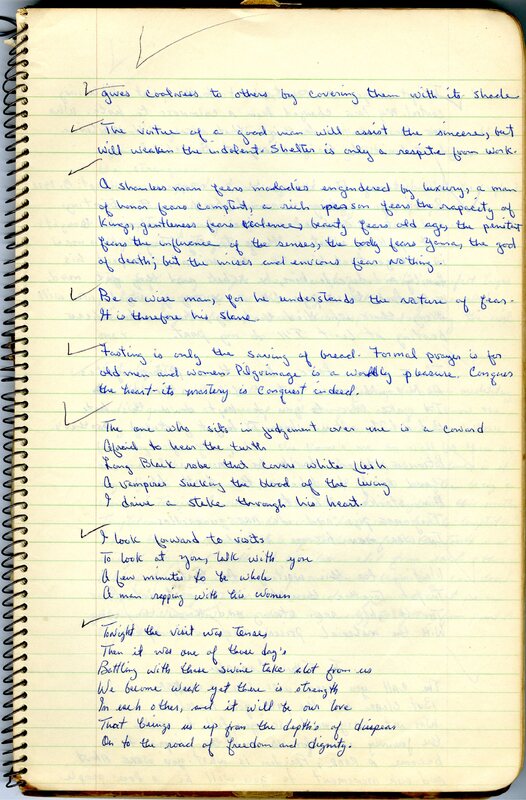 gives coolness to others by covering them with its shade
The virtue of a good man will assist the sincere, but
will weaken the indolent. Shelter is only a respite from work.
A shameless man fears maladies engendered by luxury, a man
of honor fears comptent, a rich person fears the rapacity of
Kings, gentleness fears violence, beauty fears old age, the penitent
fears the influence of the senses, the body fears Yama, the god
of death; but the miser and envious fear nothing.
Be a wise man, for he understands the nature of fear.
It is therefore his slave.
Fasting is only the saving of bread. Formal prayer is for
old men and women. Pilgrimage is a worldly pleasure. Conquer
the heart - its mastery is conquest indeed.
The one who sits in judgement over me is a coward
Afraid to hear the truth
Long Black robe that covers white flesh
A vampires sucking the blood of the living
I drive a stake through his heart.
I look forward to visits
To look at you, talk with you
A few minutes to be whole
A man rapping with his women
Tonight the visit was tense,
Then it was one of those day's
Battling with these swine take alot from us
We become weak yet there is strength
In each other, and it will be our love
That brings us up from the depth's of despair
On to the road of freedom and dignity.